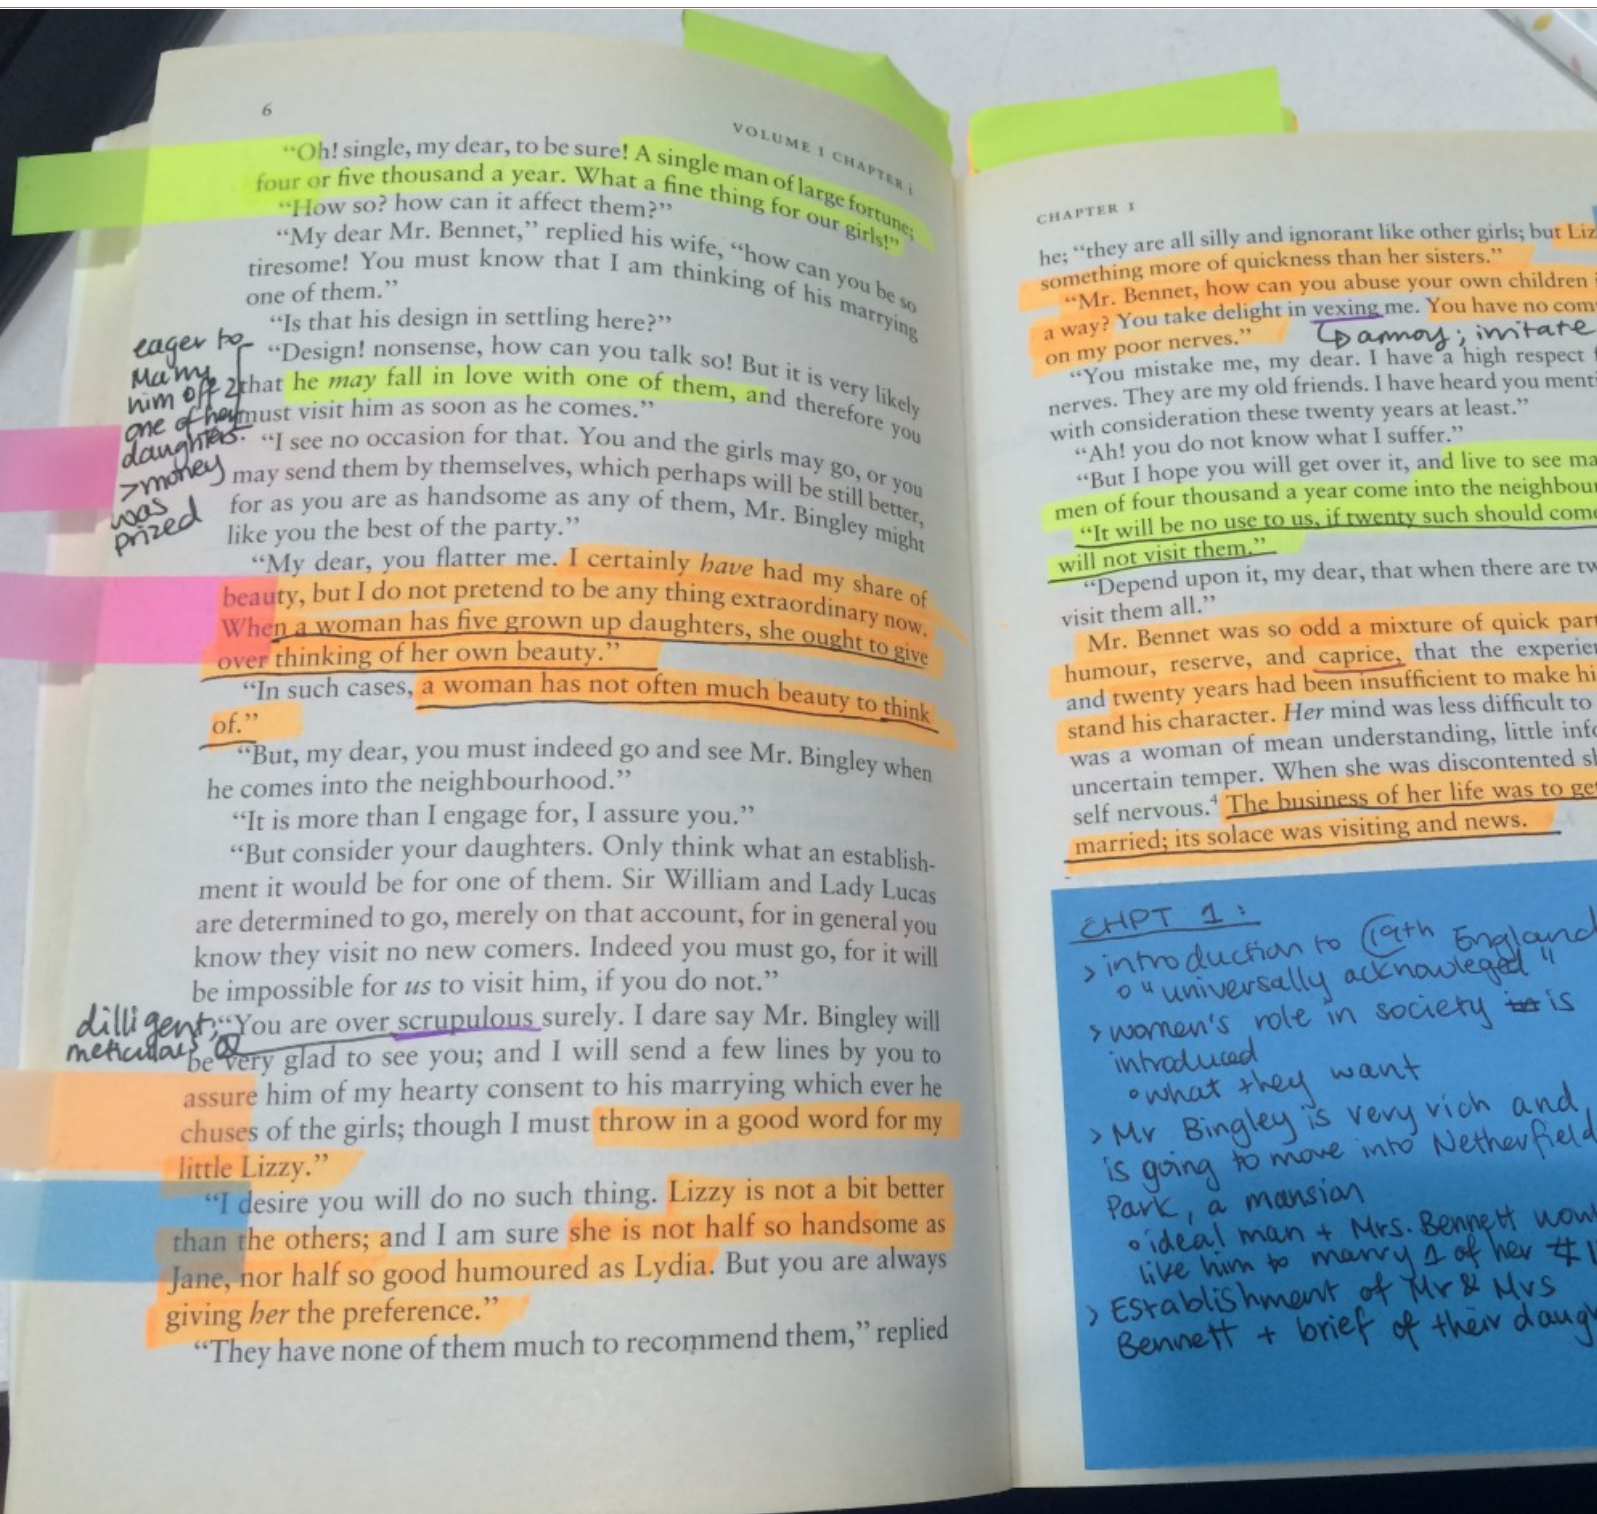 6
VOLUME I CHAPTER i
“Oh! single, my dear, to be sure! A single man of large fortune;
four or five thousand a year. What a fine thing for our girls!”
“How so? how can it affect them?”
“My dear Mr. Bennet,” replied his wife, “how can you be so
tiresome! You must know that I am thinking of his marrying
one of them.”
“Is that his design in settling here?”
“Design! nonsense, how can you talk so! But it is very likely
that he may fall in love with one of them, and therefore you
must visit him as soon as he comes.”
“I see no occasion for that. You and the girls may go, or you
may send them by themselves, which perhaps will be still better,
for as you are as handsome as any of them, Mr. Bingley might
like you the best of the party.”
“My dear, you flatter me. I certainly have had my share of
beauty, but I do not pretend to be any thing extraordinary now.
When a woman has five grown up daughters, she ought to give
over thinking of her own beauty.”
“In such cases, a woman has not often much beauty to think
of.”
“But, my dear, you must indeed go and see Mr. Bingley when
he comes into the neighbourhood.”
“It is more than I engage for, I assure you.”
“But consider your daughters. Only think what an establish-
ment it would be for one of them. Sir William and Lady Lucas
are determined to go, merely on that account, for in general you
know they visit no new comers. Indeed you must go, for it will
be impossible for us to visit him, if you do not.”
“You are over scrupulous surely. I dare say Mr. Bingley will
be very glad to see you; and I will send a few lines by you to
assure him of my hearty consent to his marrying which ever he
chuses of the girls; though I must throw in a good word for my
little Lizzy.”
“I desire you will do no such thing. Lizzy is not a bit better
than the others; and I am sure she is not half so handsome as
Jane, nor half so good humoured as Lydia. But you are always
giving her the preference.”
“They have none of them much to recommend them,” replied
eager to
marry
him off 2
one of her
daughters.
>money
was
prized
dilligent;
meticulous
CHAPTER I
he; “they are all silly and ignorant like other girls; but Liz
something more of quickness than her sisters.”
“Mr. Bennet, how can you abuse your own children i
a way? You take delight in vexing me. You have no com
on my poor nerves.”
annoy; irritate
“You mistake me, my dear. I have a high respect f
nerves. They are my old friends. I have heard you menti
with consideration these twenty years at least.”
“Ah! you do not know what I suffer.”
“But I hope you will get over it, and live to see ma
men of four thousand a year come into the neighbour
“It will be no use to us, if twenty such should come
will not visit them.”
“Depend upon it, my dear, that when there are tw
visit them all.”
Mr. Bennet was so odd a mixture of quick part
humour, reserve, and caprice, that the experien
and twenty years had been insufficient to make hi
stand his character. Her mind was less difficult to
was a woman of mean understanding, little info
uncertain temper. When she was discontented sh
self nervous.4 The business of her life was to get
married; its solace was visiting and news.
CHPT 1:
> introduction to 19th England
o "universally acknowleged"
> women's role in society is
introduced
o what they want
> Mr Bingley is very rich and
is going to move into Netherfield
Park, a mansion
o ideal man + Mrs. Bennett woul
like him to marry 1 of her
> Establishment of Mr & Mrs
Bennett + brief of their daugh